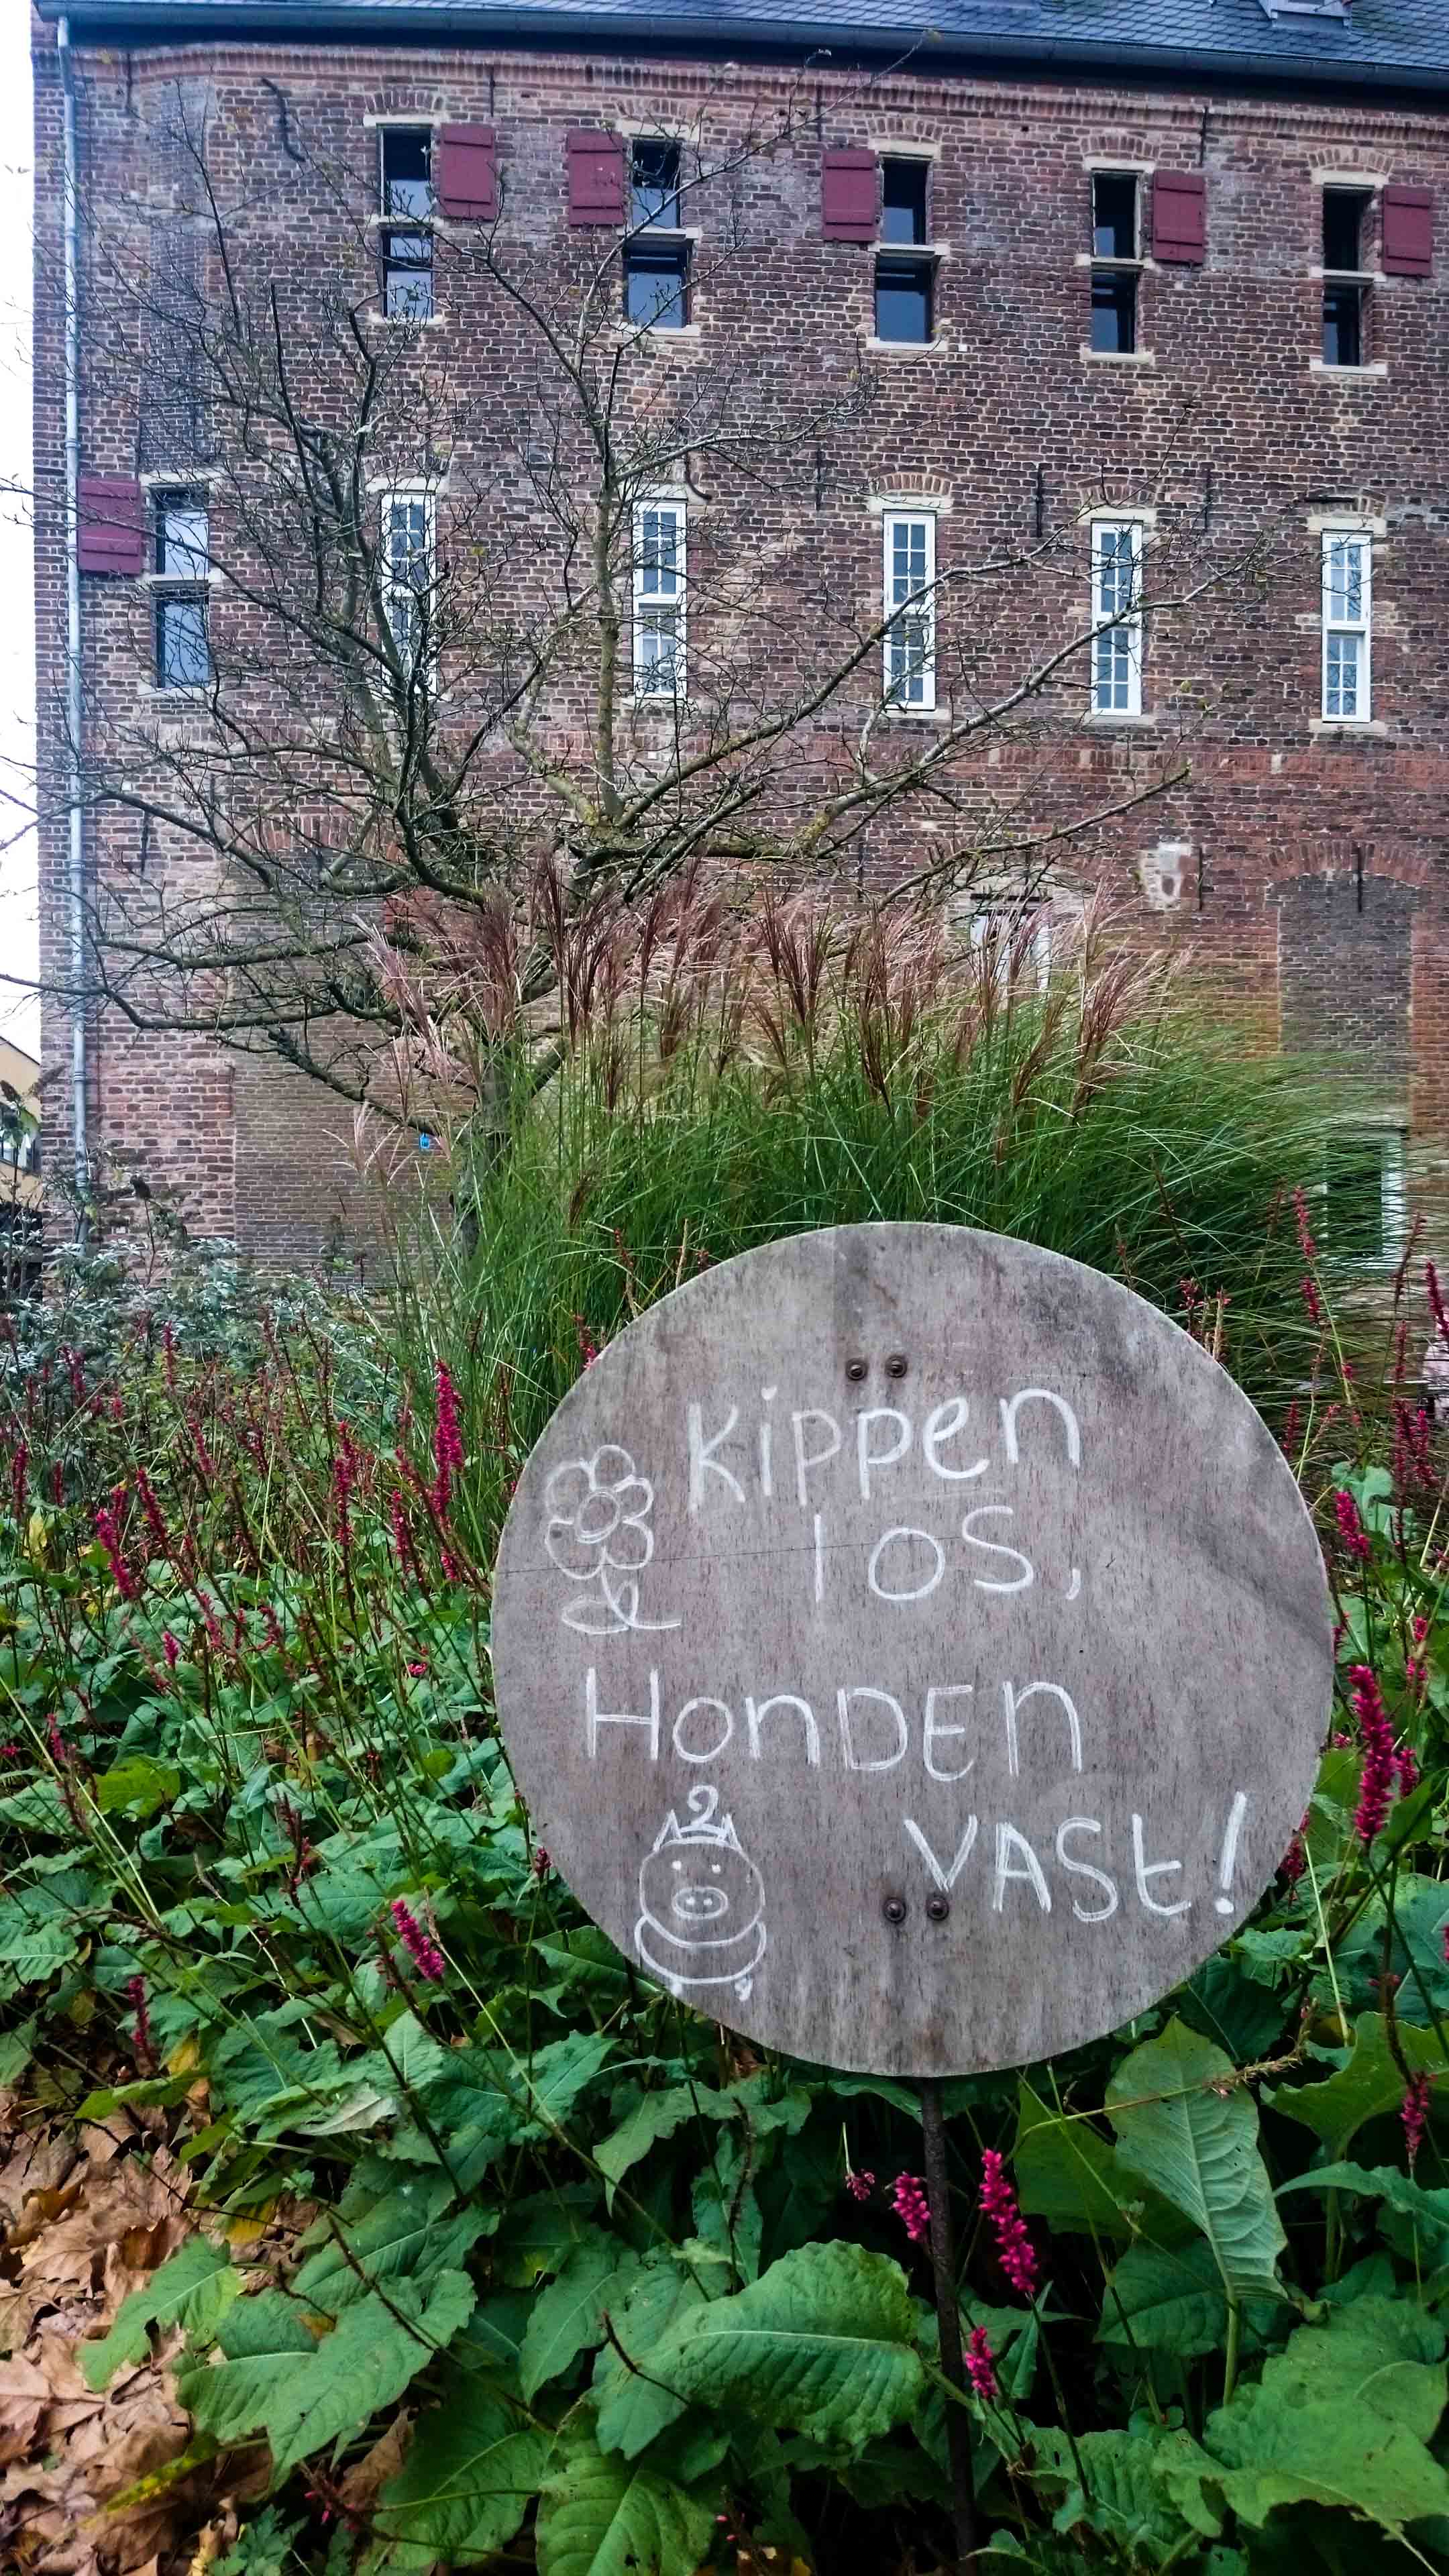 Kippen
los,
HonDEn
VASt!